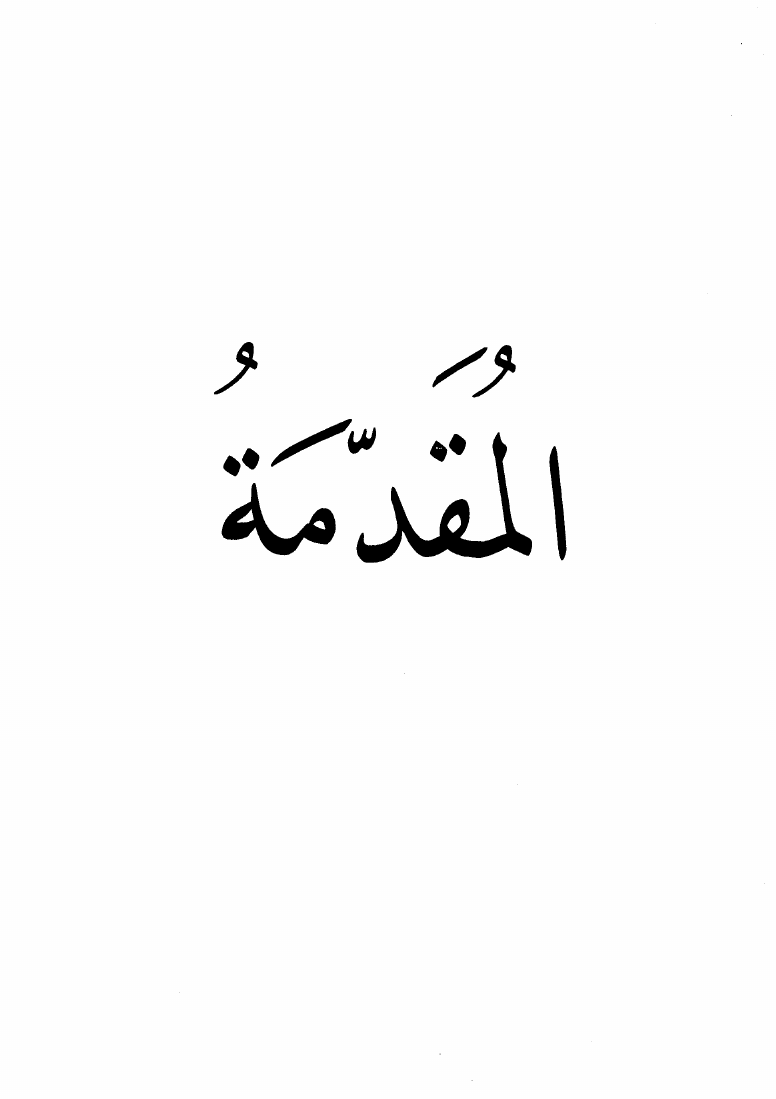 المُقَدّمَةُ